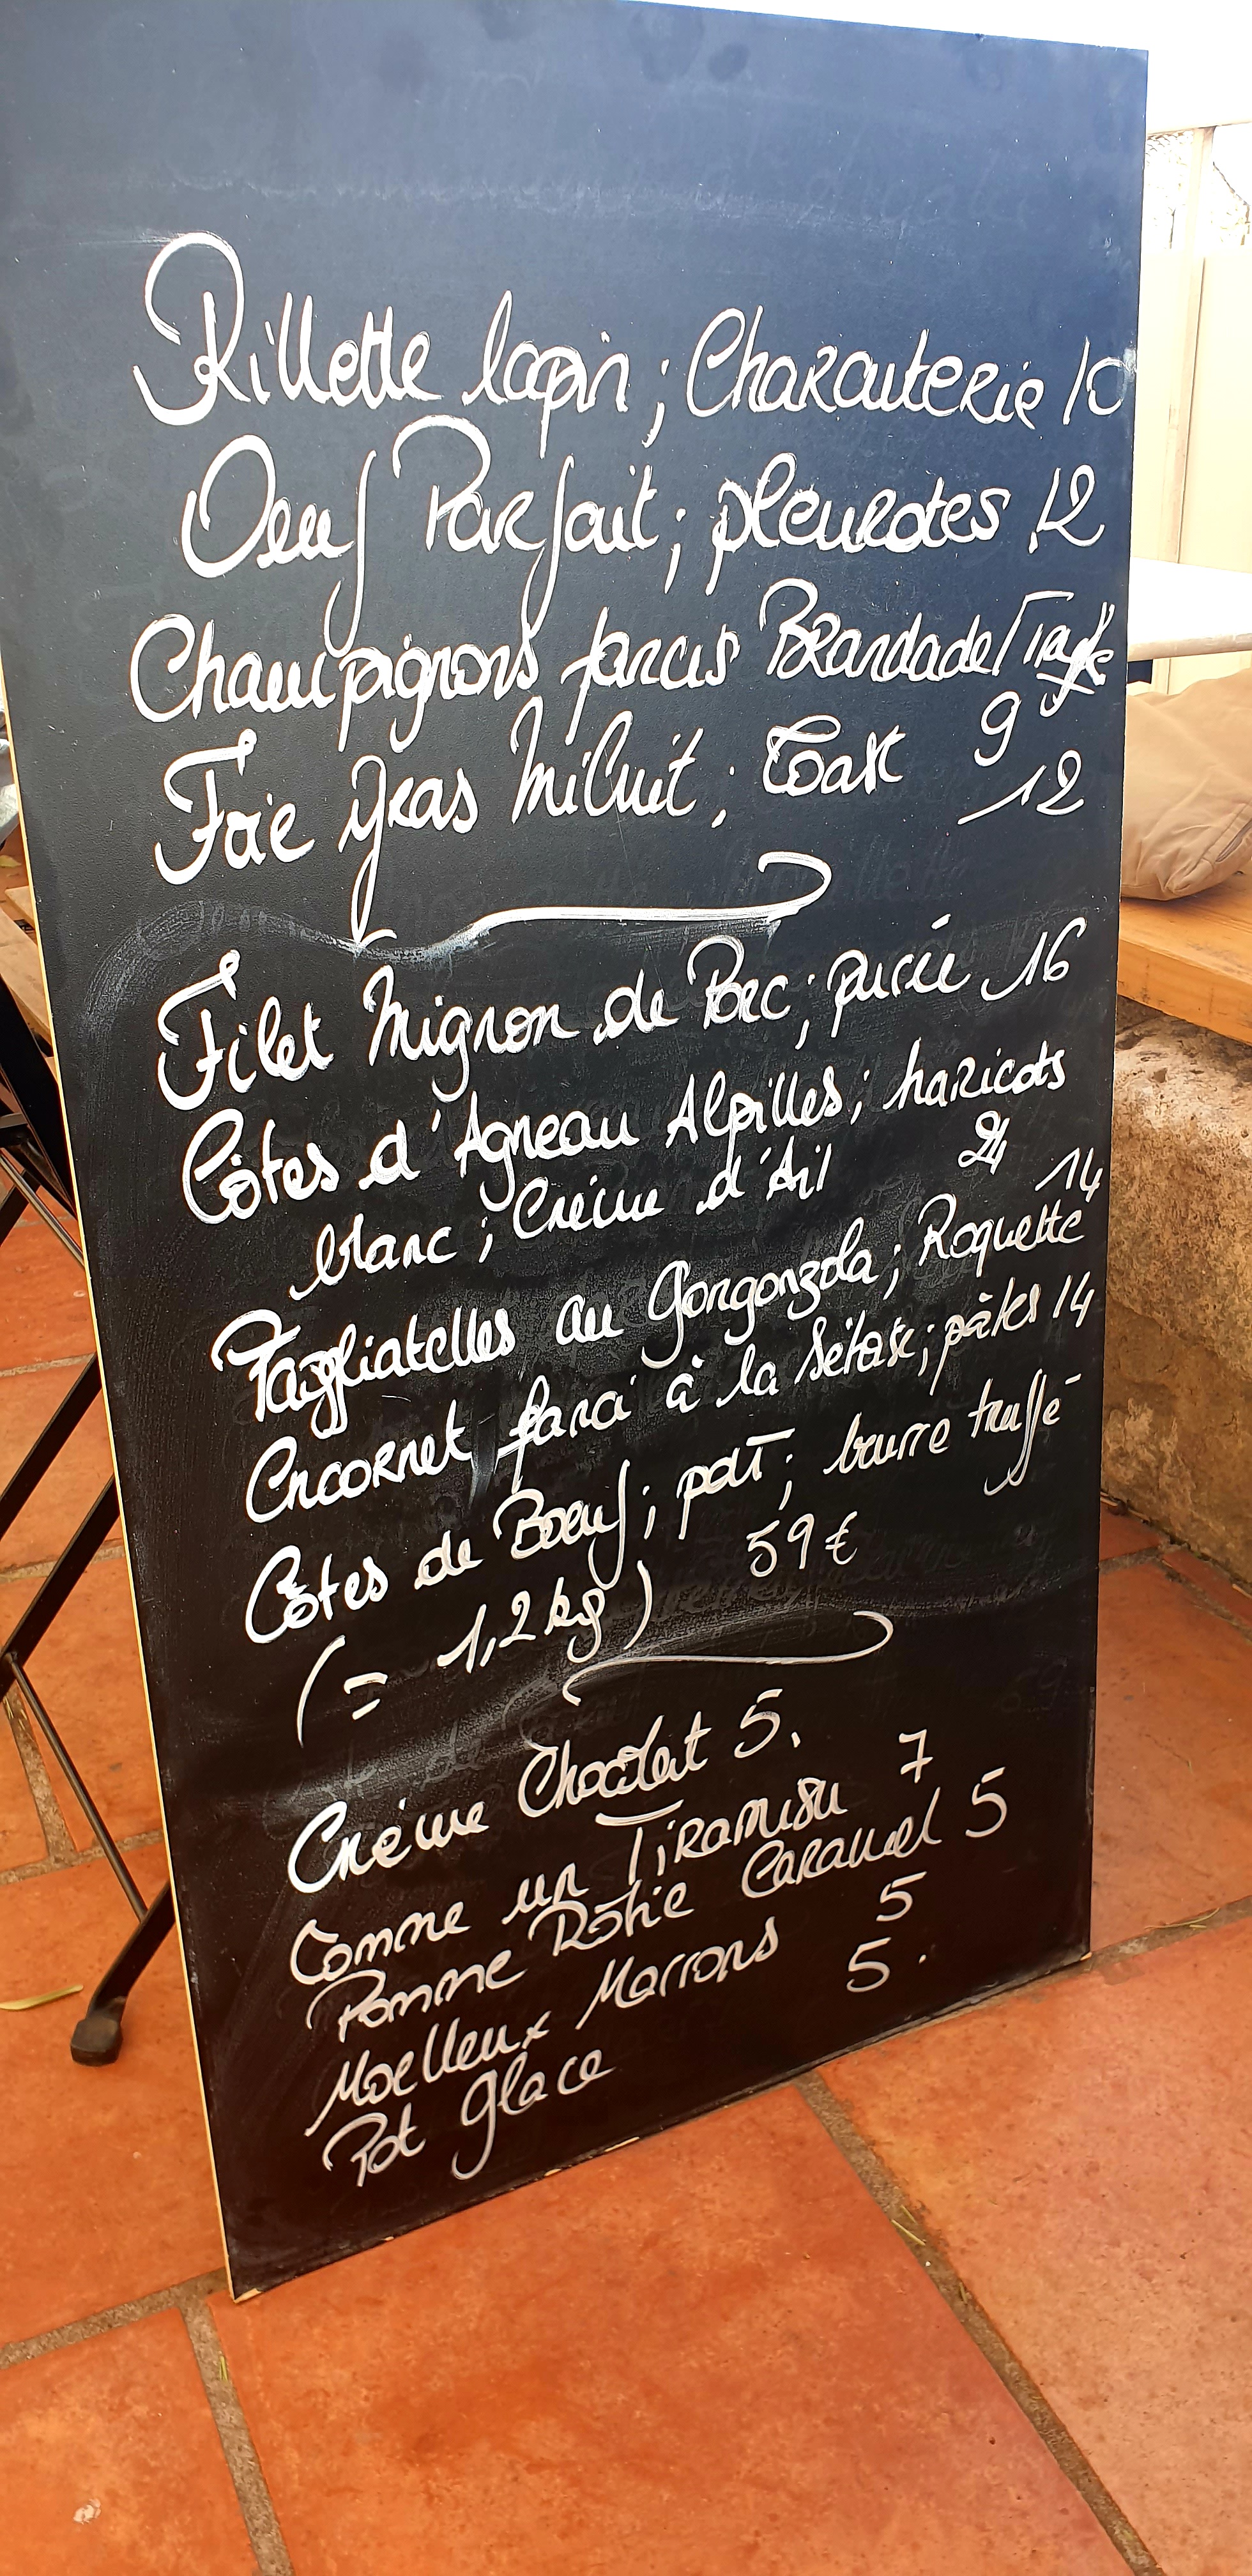 Rillette lapin ; Charcuterie 10
Oeuf Parfait ; pleurotes 12
Champignons farcis Brandade/Truffe
9
Foie gras MiCuit ; Toast 12
Filet Mignon de Porc ; purée 16
Côtes d'Agneau Alpilles ; haricots
blanc ; Crème d'Ail 24
14
Tagliatelles au Gorgonzola ; Roquette
Encornet farci à la Sétoise ; pâtes 14
Côtes de Boeuf ; pdt ; beurre truffé
(= 1,2 kg) 59 €
Crème Chocolat 5.
Comme un Tiramisu 7
Pomme Rôtie Caramel 5
Moelleux Marrons 5
Pot Glace 5.